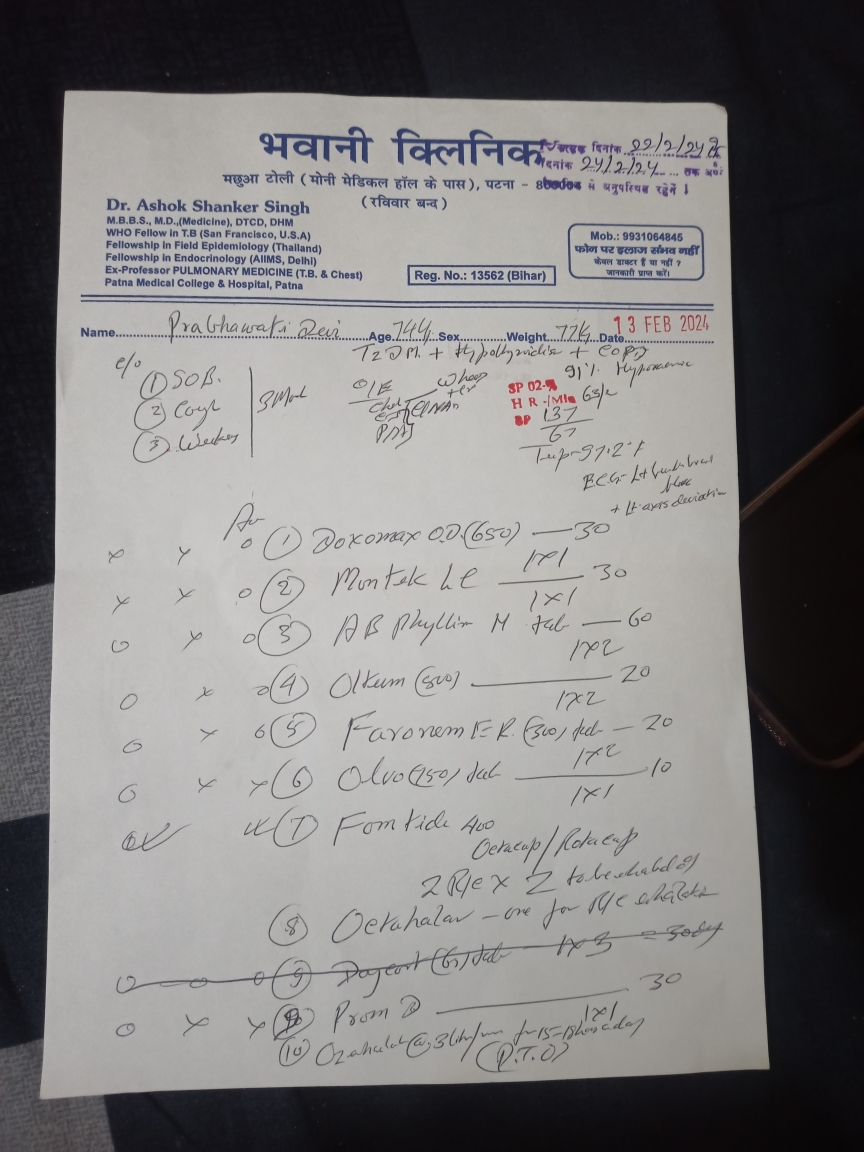 भवानी क्लिनिक
दिनांक 22/2/24 से
दिनांक 24/2/24 तक
से अनुपस्थित रहेंगे ।
मछुआ टोली ( मोनी मेडिकल हॉल के पास), पटना -
( रविवार बन्द )
Dr. Ashok Shanker Singh
M.B.B.S., M.D.,(Medicine), DTCD, DHM
WHO Fellow in T.B (San Francisco, U.S.A)
Fellowship in Field Epidemiology (Thailand)
Fellowship in Endocrinology (AIIMS, Delhi)
Ex-Professor PULMONARY MEDICINE (T.B. & Chest)
Patna Medical College & Hospital, Patna
Reg. No.: 13562 (Bihar)
Mob.: 9931064845
फोन पर इलाज संभव नहीं
केवल डाक्टर हैं या नहीं ?
जानकारी प्राप्त करें।
Name Prabhawati Devi Age 74y Sex Weight 77k Date 13 FEB 2024
T2DM + Hypothyroidism + COPD
c/o
① SOB.
② Cough
③ Weakness
O/E
Chest
91% Hypoxaemia
SP 02-
H R -/Min 63/m
BP 137
67
Temp-97.2°F
ECG- Lt bundle branch
block
+ Lt. axis deviation
Adv
x x o ① Doxomax O.D. (650) — 30
1x1
x x o ② Montek LC — 30
1x1
o x o ③ AB Phyllin N tab — 60
1x2
o x o ④ Olkem (500) — 20
1x2
o x o ⑤ Faronem E.R. (300) tab — 20
1x2
o x x ⑥ Olvo (750) tab — 10
1x1
⑦ Fomtide 400
Octacap / Rotacap
2 R/c x 2 to be inhaled
⑧ Octahaler - one for R/c inhalation
o o o ⑨ tab 1x3 = 30
o x x Prom D — 30
1x1
⑩ @ 3 litre/min for 15-18 hours a day
(P.T.O)